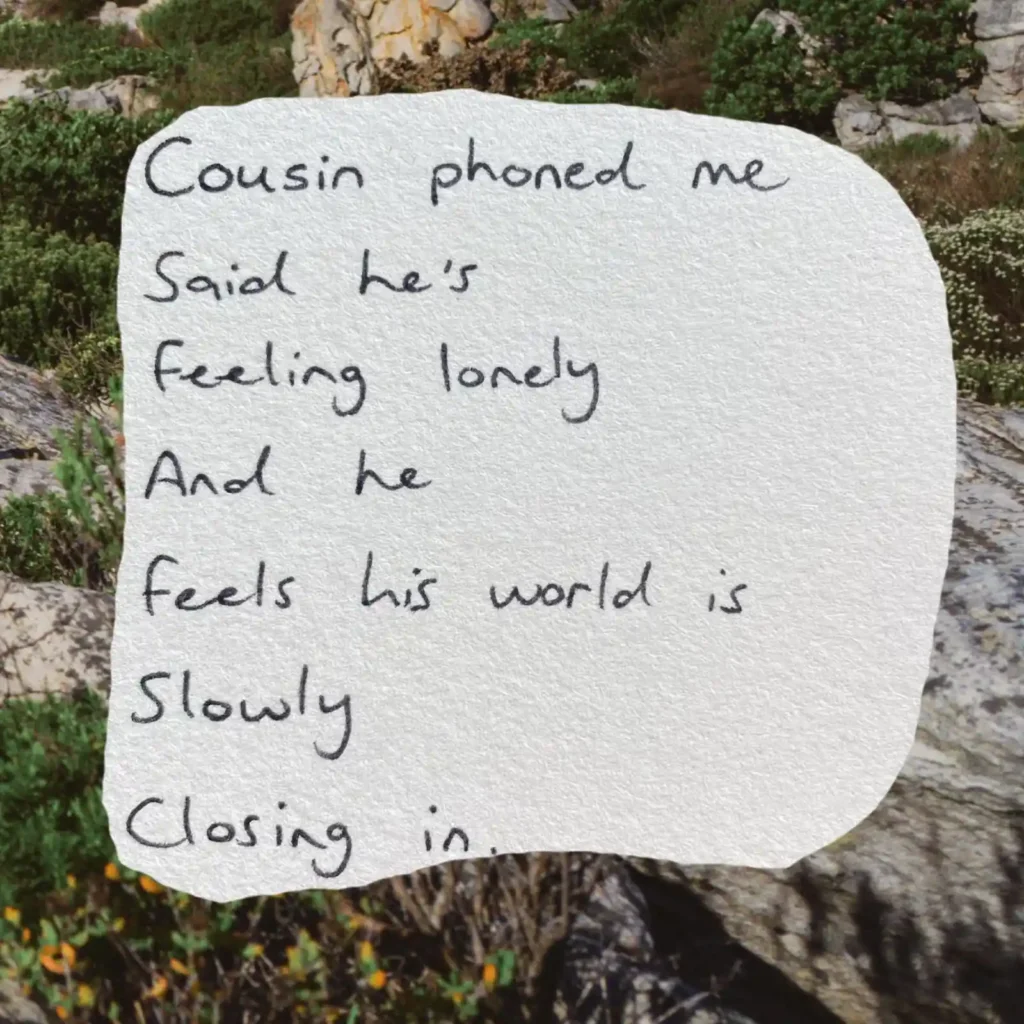 Cousin phoned me
Said he's
Feeling lonely
And he
Feels his world is
Slowly
Closing in.